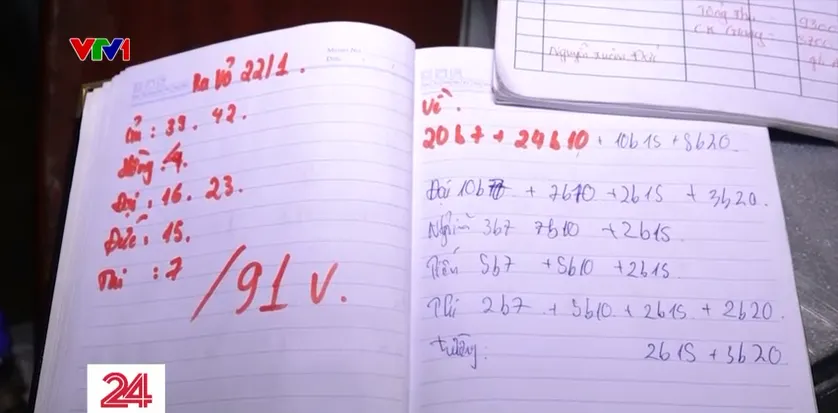 VTV1
Ra Vỏ 22/1.
Củ: 39. 42.
Đại: 16. 23.
Đức: 15.
Thi: 7
/91 V.
Về.
20b7 + 24b10 + 10b15 + 8b20.
Đại 10b7 + 7b10 + 2b15 + 3b20.
Nghĩa 3b7 7b10 + 2b15.
Tiến 5b7 + 5b10 + 2b15.
Thi 2b7 + 5b10 + 2b15 + 2b20.
Tưởng: 2b15 + 3b20
Nguyễn Xuân Đại
24